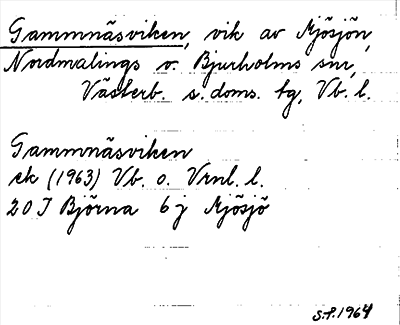 Gammnäsviken, vik av Mjösjön,
Nordmalings o. Bjurholms snr,
Västerb. s. doms. tg, Vb. l.
Gammnäsviken
ek (1963) Vb. o. Vrnl. l.
20 I Björna 6 j Mjösjö
S.P. 1964